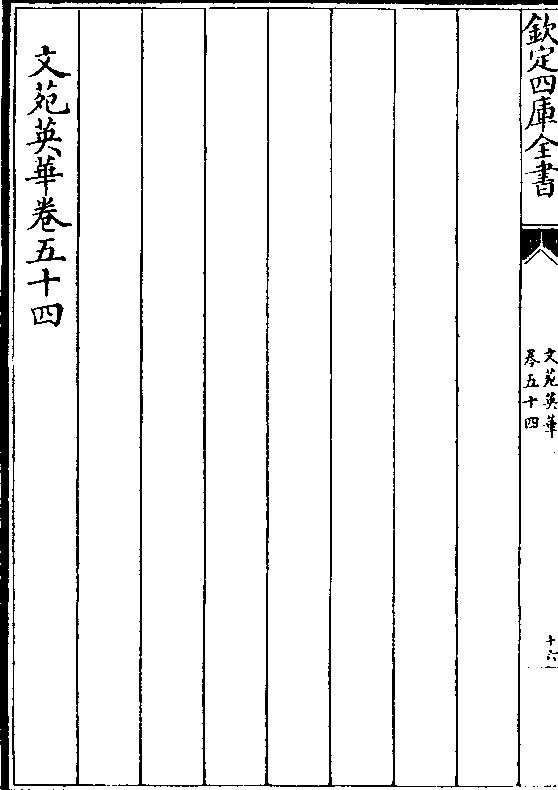 欽定四庫全書
文苑英華
卷五十四
十六
文苑英華卷五十四